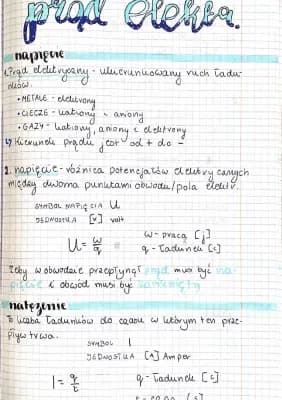 prąd elektr.
napięcie
1. Prąd elektryczny - ukierunkowany ruch ładu-
nków.
• METALE - elektrony
• CIECZE - kationy i aniony
• GAZY - kationy, aniony i elektrony
↳ Kierunek prądu jest od + do -
2. napięcie - różnica potencjałów elektrycznych
między dwoma punktami obwodu/pola elektr.
SYMBOL NAPIĘCIA U
JEDNOSTKA [V] volt
U = W/q
W - praca [J]
q - ładunek [C]
Żeby w obwodzie przepłynął prąd musi być na-
pięcie i obwód musi być zamknięty
natężenie
To liczba ładunków do czasu w którym ten prze-
pływ trwa.
SYMBOL I
JEDNOSTKA [A] Amper
I = q/t
q - ładunek [C]